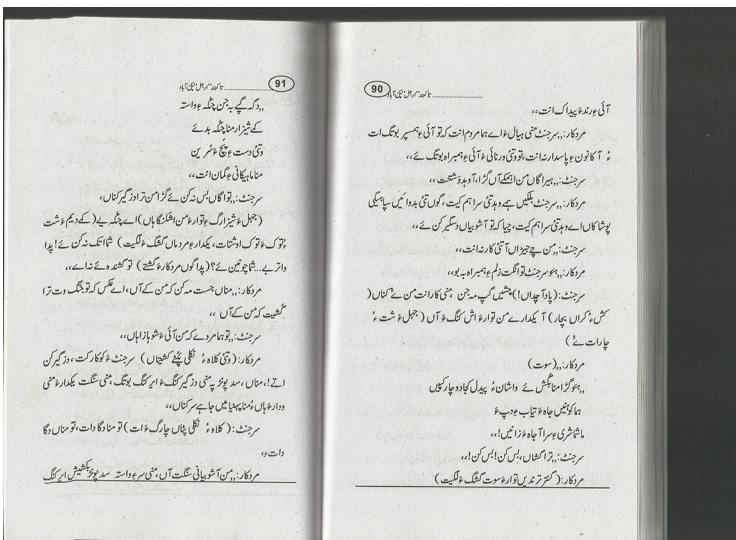 90 تاکبند "زرجل" پنجی آباد
آئی ءِ رندءَ پیداک انت،،
مردکار:,,سرجنٹ منی ہیال ءَ اے ہما مردم انت کہ تو آئی ءِ ہمسپر بوتگ ات
ءُ آ کانون ءِ پاسدار نہ انت، تو وتی ورنائی ءَ آئی ءِ ہمبراہ بوتگ ئے،،
سرجنٹ:,,بیرا گاں من
مردکار:,,سرجنٹ بلکیں ہمے وہدءَ تئی سرا ہم کیت، گوں تئی بدوائیں سپاہیگی
پوشاکاں اے وہدءَ تئی سرا ہم کیت، چیا کہ تو آشوبیاں دسگیر کن ئے،،
سرجنٹ:,,من چے چیزاں آ تئی کار نہ انت،،
مردکار:,,ہئو سرجنٹ تو انگت زلم ءِ ہمبراہ بہ بو،،
سرجنٹ:(پاد آ چداں!) چشیں گپ مہ جن، منی کار انت من ئے کناں (
کش ءُ کراں بچار) آ یکدارے من توارءَ اش کنگ ءَ آں (جہل ءَ شت ءُ
چارات ئے)
مردکار:,,(سوت)
,,ہئو گڑا منا گش ئے واشان ءُ پیدل کجا دو چار کپیں
ہما کوہنیں جاہ ءَ تیاب ءِ دپ ءَ
ما شما شری ءِ سرا آ جاہ ءَ زانیں!,,
سرجنٹ:,,ترا گشاں، بس کن! بس کن!,,
مردکار:(گستر ترندیں توارءَ سوت گشگ ءَ لگیت)
91 تاکبند "زرجل" پنجی آباد
,,دگہ گپے بہ جن چنگ ءِ واستہ
کے شیزار منا چنگہ بدئے
وتی دست ءِ پنچ ءَ سرین
منا ماہیکانی ءِ گمان انت،،
سرجنٹ:,,تو اگاں بس نہ کن ئے گڑا من ترا دزگیر کناں،
(جہل ءَ شیزارگ ءِ توارءَ من اشکنگا ہاں) اے چنگہ یے (کے دیم ءَ شت
ءُ توک ءَ توک اوشتات، یکدار ءِ مردماں گشگ ءَ لگیت) شما تک نہ کن ئے! پدا
واتر بے... شما چونین ئے؟ (پدا گوں مردکارءَ گشے) تو گشندہ ئے نہ اے،،
مردکار:,,مناں جست مہ کن کہ من کے آں، اے عکس کہ تو جنگ وت ترا
گشیت کہ من کے آں،،
سرجنٹ:,,تو ہما مردے کہ من آئی ءَ شوہازا ہاں،،
مردکار:(وتی کلاہ ءُ نکلی پٹے کشیتاں) سرجنٹ ءَ کوکارکت، دزگیر کن
اتے!، مناں، سد پونڈ پہ منی دزگیر کنگ ءَ ایر کنگ بوتگ، منی سنگت یکدارءَ منی
ودارءَ ہاں ءُ منا پہنیا میں جاہے سر کناں،،
سرجنٹ:(کلاہ ءُ نکلی پٹاں چارگ ءَ ات) تو منا دگا دات، تو مناں دگا
دات،،
مردکار:,,من آشوبیانی سنگت آں، منی سر ءِ واستہ سد پونڈ بکشیش ایر کنگ